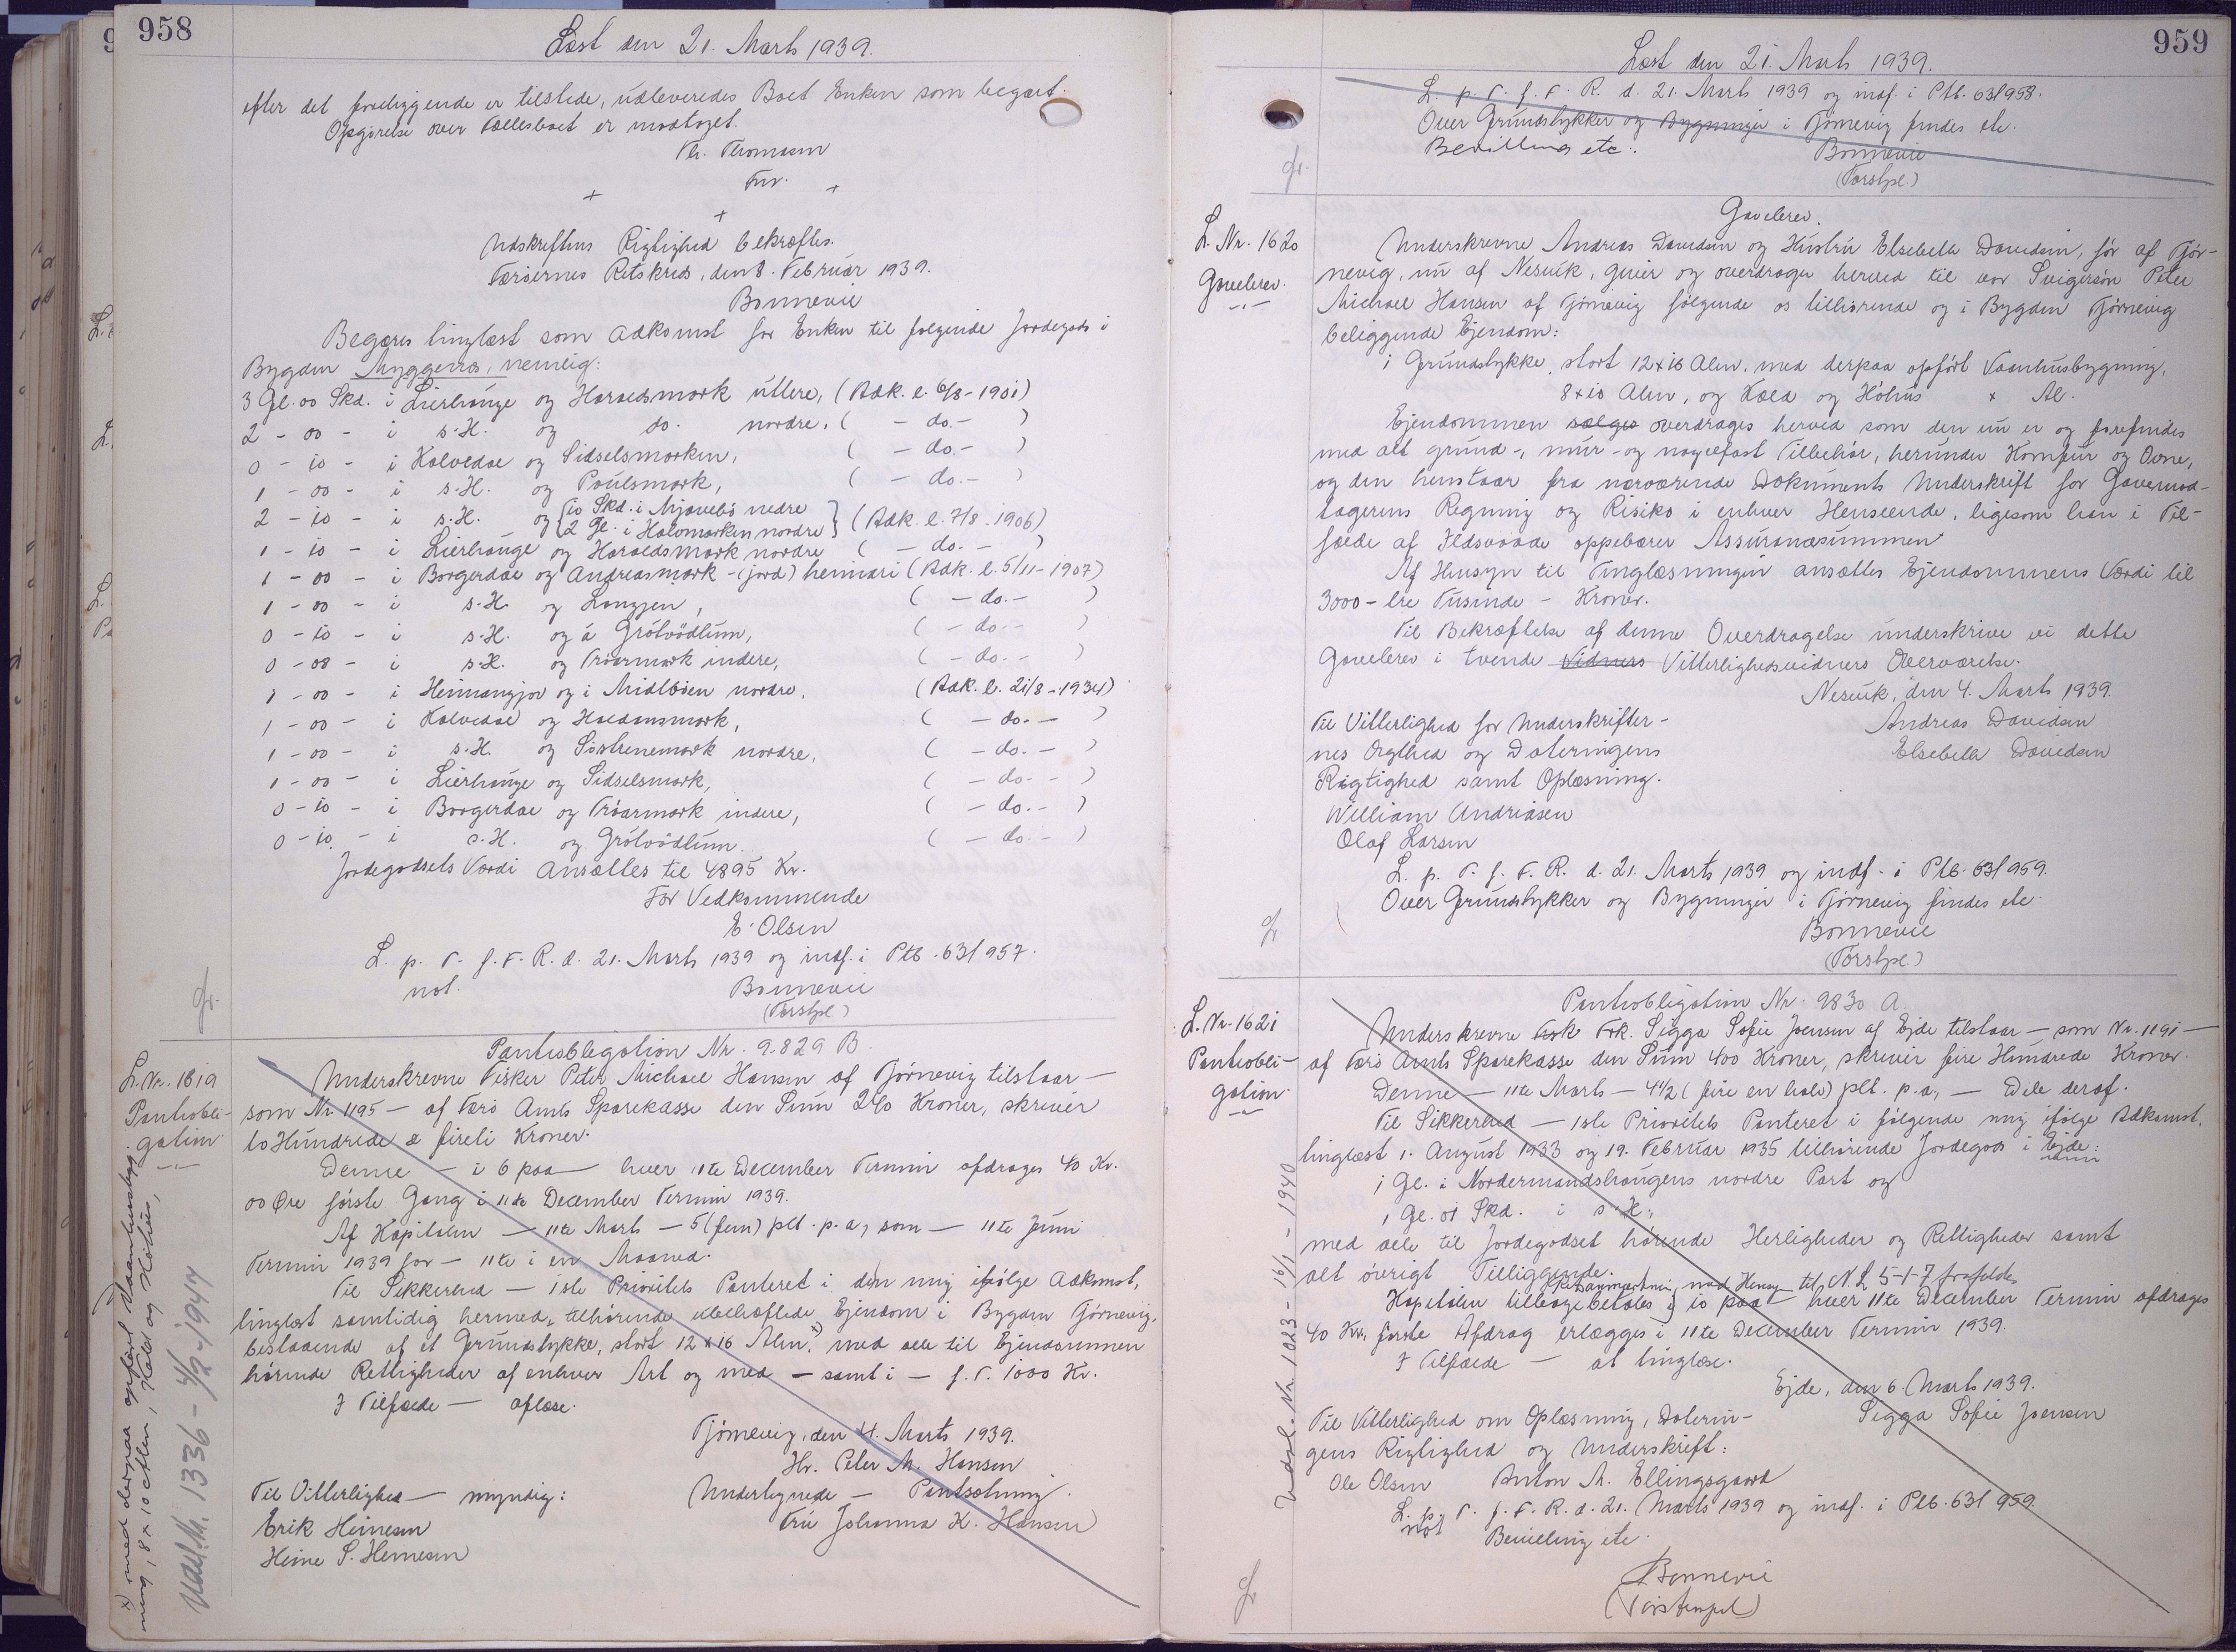 958
Læst den 21. Marts 1939.
efter det foreliggende er tilstede, udleveredes Boet Enken som begært.
Opgørelse over Fællesboet er modtaget.
Th. Thomsen
Fm.
+ + +
Udskriftens Rigtighed bekræftes.
Færøernes Retskreds, den 8. Februar 1939.
Bonnevie
Begæres tinglæst som Adkomst for Enken til følgende Jordegods i
Bygden Myggenæs, nemlig:
3 Gl. 00 Skd. i Lierhauge og Haraldsmark ütlere, (Adk. l. 6/8-1901)
2 - 00 - i s.H. og do. nordre, ( - do.- )
0 - 10 - i Kalvedal og Sidselsmarken, ( - do.- )
1 - 00 - i s.H. og Poulsmark, ( - do.- )
2 - 10 - i s.H. og {10 Skd. i Mjavebø nedre
2 Gl. i Halvmarken nordre} (Adk. l. 7/8-1906)
1 - 10 - i Lierhauge og Haraldsmark nordre ( - do. - )
1 - 00 - i Borgerdal og Andreasmark-(jord) heimari (Adk. l. 5/11-1907)
1 - 00 - i s.H. og Langjen, ( - do.- )
0 - 10 - i s.H. og á Grótvødlum, ( - do.- )
0 - 08 - i s.H. og Tróarmark indere, ( - do.- )
1 - 00 - i Heimangjov og i Midlbøen nordre, (Adk. l. 21/8-1934)
1 - 00 - i Kalvedal og Haldansmark, ( - do.- )
1 - 00 - i s.H. og Søstrenemark nordre, ( - do.- )
1 - 00 - i Lierhauge og Sidselsmark, ( - do.- )
0 - 10 - i Borgerdal og Tróarmark indere, ( - do.- )
0 - 10 - i s.H. og Grótvødlum. ( - do.- )
Jordegodsets Værdi ansættes til 4895 Kr.
For Vedkommende
E. Olsen
L. p. T. f. F. R. d. 21. Marts 1939 og indf. i Ptb. 63/957.
not. Bonnevie
(Forstpl.)
L. Nr. 1619
Pantobli-
gation.
Pantobligation Nr. 9.829 B.
Underskrevne Fisker Peter Michael Hansen af Tjørnevig tilstaar —
som Nr. 1195 — af Færø Amts Sparekasse den Sum 240 Kroner, skriver
to Hundrede & fireti Kroner.
Denne — i 6 paa — hver 11te December Termin afdrages 40 Kr.
00 Øre første Gang i 11te December Termin 1939.
Af Kapitalen — 11te Marts — 5 (fem) pCt. p. a, som — 11te Juni
Termin 1939 for — 11te i en Maaned.
Til Sikkerhed — 1ste Prioritets Panteret i den mig ifølge Adkomst,
tinglæst samtidig hermed, tilhørende ubehæftede Ejendom i Bygden Tjørnevig,
bestaaende af et Grundstykke, stort 12 x 16 Alen,x) med alle til Ejendommen
hørende Rettigheder af enhver Art og med — samt i — f. T. 1000 Kr.
I Tilfælde — aflæse.
Tjørnevig, den 4. Marts 1939.
Hr. Peter M. Hansen
Til Vitterlighed — myndig:
Undertegnede — Pantsætning.
Erik Heinesen
Fru Johanna K. Hansen
Heine S. Heinesen
x) med derpaa opført Vaanhusbyg-
ning, 8 x 10 Alen, Kæld og Hóhus,
Udsl. Nr. 1336 - 4/2-1944
959
Læst den 21. Marts 1939.
L. p. T. f. F. R. d. 21. Marts 1939 og indf. i Ptb. 63/958.
Over Grundstykker og Bygninger i Tjørnevig findes etc.
Bevilling etc.
Bonnevie
(Forstpl.)
L. Nr. 1620
Gavebrev.
Gavebrev.
Underskrevne Andreas Davidsen og Hustru Elsebeth Davidsen, før af Tjør-
nevig, nu af Nesvík, giver og overdrager herved til vor Svigersøn Peter
Michael Hansen af Tjørnevig følgende os tilhørende og i Bygden Tjørnevig
beliggende Ejendom:
1 Grundstykke, stort 12 x 16 Alen, med derpaa opført Vaanhusbygning,
8 x 10 Alen, og Kæld og Hóhus x Al.
Ejendommen sælges overdrages herved som den nu er og forefindes
med alt grund-, mur- og nagelfast Tilbehør, herunder Komfur og Ovne,
og den henstaar fra nærværende Dokuments Underskrift for Gavemod-
tagerens Regning og Risiko i enhver Henseende, ligesom han i Til-
fælde af Ildsvaade oppebærer Assurancesummen.
Af Hensyn til Tinglæsningen ansættes Ejendommens Værdi til
3000 - tre Tusinde - Kroner.
Til Bekræftelse af denne Overdragelse underskrive vi dette
Gavebrev i tvende Vidners Vitterlighedsvidners Overværelse.
Nesvík, den 4. Marts 1939.
Til Vitterlighed for Underskrifter-
Andreas Davidsen
nes Ægthed og Dateringens
Elsebeth Davidsen
Rigtighed samt Oplæsning.
William Andriasen
Olaf Larsen
L. p. T. f. F. R. d. 21. Marts 1939 og indf. i Ptb. 63/959.
Over Grundstykker og Bygninger i Tjørnevig findes etc.
Bonnevie
(Forstpl.)
L. Nr. 1621
Pantobli-
gation.
Pantobligation Nr. 9830 A.
Underskrevne Frk. Sigga Sofie Joensen af Ejde tilstaar — som Nr. 1191 —
af Færø Amts Sparekasse den Sum 400 Kroner, skriver fire Hundrede Kroner.
Denne — 11te Marts — 4 1/2 (fire en halv) pCt. p. a, — Dele deraf.
Til Sikkerhed — 1ste Prioritets Panteret i følgende mig ifølge Adkomst,
tinglæst 1. August 1933 og 19. Februar 1935 tilhørende Jordegods i Ejde:
1 Gl. i Nordermandshaugens nordre Part og
1 Gl. 01 Skd. i s.H.,
med alle til Jordegodset hørende Herligheder og Rettigheder samt
alt øvrigt Tilliggende.
Kapitalen tilbagebetales i 10 paa — hver 11te December Termin afdrages
40 Kr., første Afdrag erlægges i 11te December Termin 1939.
I Tilfælde — at tinglæse.
Ejde, den 6. Marts 1939.
Til Vitterlighed om Oplæsning, Daterin-
Sigga Sofie Joensen
gens Rigtighed og Underskrift:
Ole Olsen Anton M. Ellingsgaard
L. p. T. f. F. R. d. 21. Marts 1939 og indf. i Ptb. 63/959.
not Bevilling etc.
Bonnevie
(Forstempel)
Udsl. Nr. 1023 - 16/1 - 1940